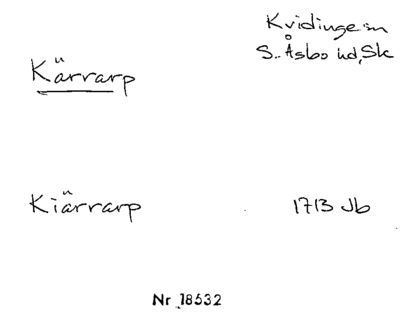 Kvidinge sn
S. Åsbo hd, Sk
Kärrarp
Kiärrarp 1713 Jb
Nr 18532